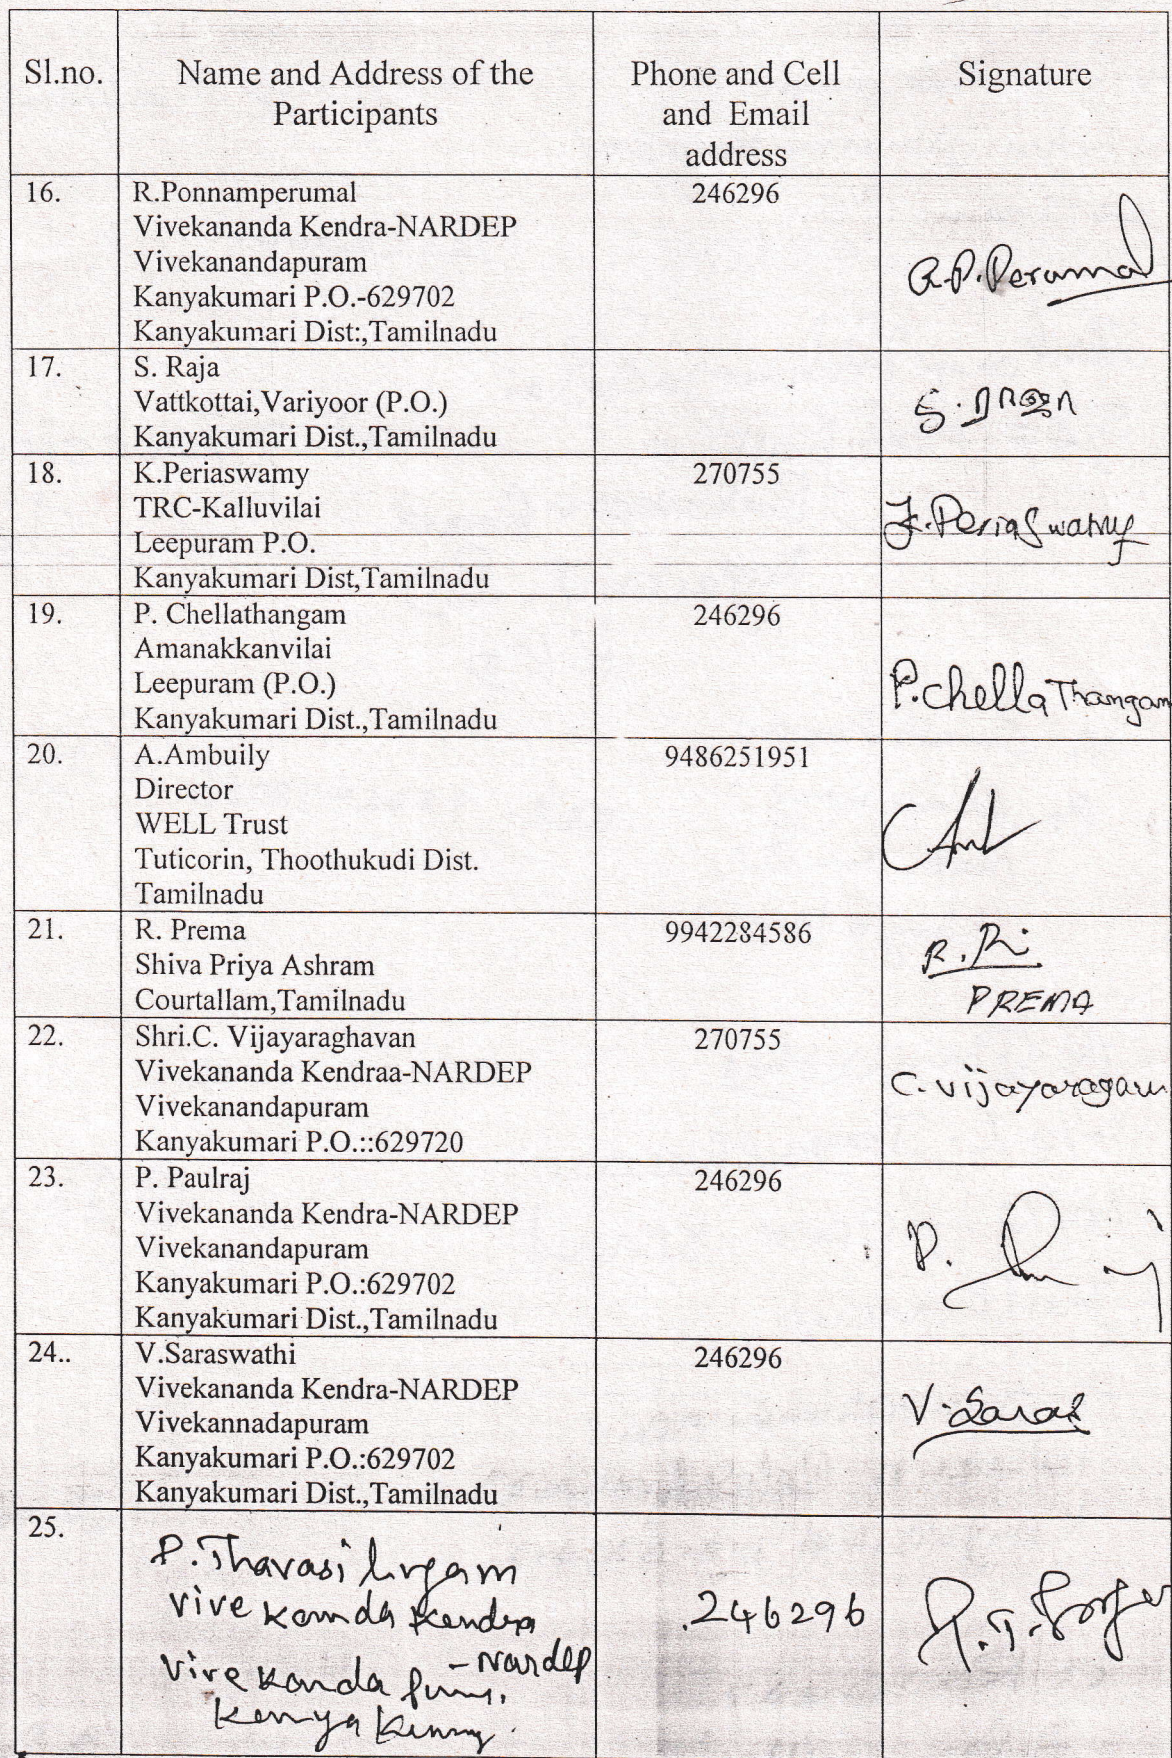 Sl.no. Name and Address of the Participants Phone and Cell and Email address Signature
16. R.Ponnamperumal 246296
Vivekananda Kendra-NARDEP
Vivekanandapuram
Kanyakumari P.O.-629702
Kanyakumari Dist:,Tamilnadu
R.P.Perumal
17. S. Raja
Vattkottai,Variyoor (P.O.)
Kanyakumari Dist.,Tamilnadu
S.ராஜா
18. K.Periaswamy 270755
TRC-Kalluvilai
Leepuram P.O.
Kanyakumari Dist,Tamilnadu
K.Periaswamy
19. P. Chellathangam 246296
Amanakkanvilai
Leepuram (P.O.)
Kanyakumari Dist.,Tamilnadu
P.chella Thangam
20. A.Ambuily 9486251951
Director
WELL Trust
Tuticorin, Thoothukudi Dist.
Tamilnadu
21. R. Prema 9942284586
Shiva Priya Ashram
Courtallam,Tamilnadu
PREMA
22. Shri.C. Vijayaraghavan 270755
Vivekananda Kendraa-NARDEP
Vivekanandapuram
Kanyakumari P.O.::629720
C.vijayaragavan
23. P. Paulraj 246296
Vivekananda Kendra-NARDEP
Vivekanandapuram
Kanyakumari P.O.:629702
Kanyakumari Dist.,Tamilnadu
P.
24.. V.Saraswathi 246296
Vivekananda Kendra-NARDEP
Vivekannadapuram
Kanyakumari P.O.:629702
Kanyakumari Dist.,Tamilnadu
V.Saras
25. P.Thavasi lingam
vivekanda Kendra
-Nardep
vivekanda
.246296